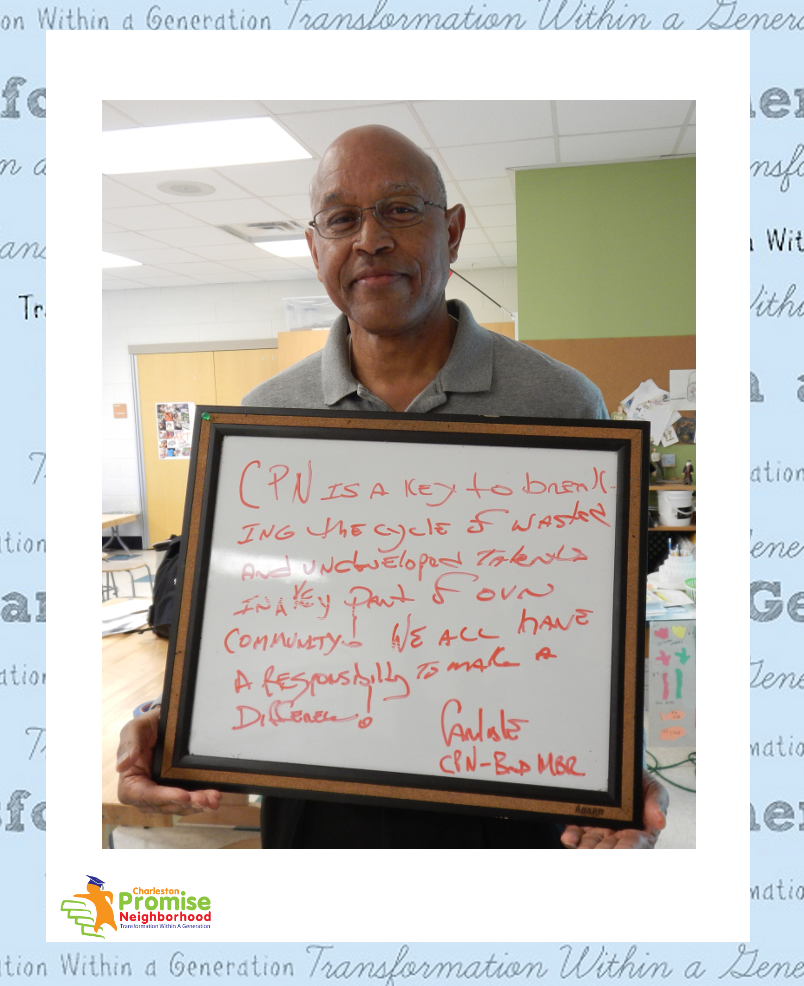 on Within a Generation Transformation Within a Genera
CPN IS A KEY to break-
ING the cycle of wasted
AND UNDEVELOPED TALENTS
IN A KEY PART of OUR
COMMUNITY! WE ALL HAVE
A Responsibility TO MAKE A
Difference!
CPN-Bd MBR
Charleston
Promise
Neighborhood
Transformation Within A Generation
tion Within a Generation Transformation Within a Gene